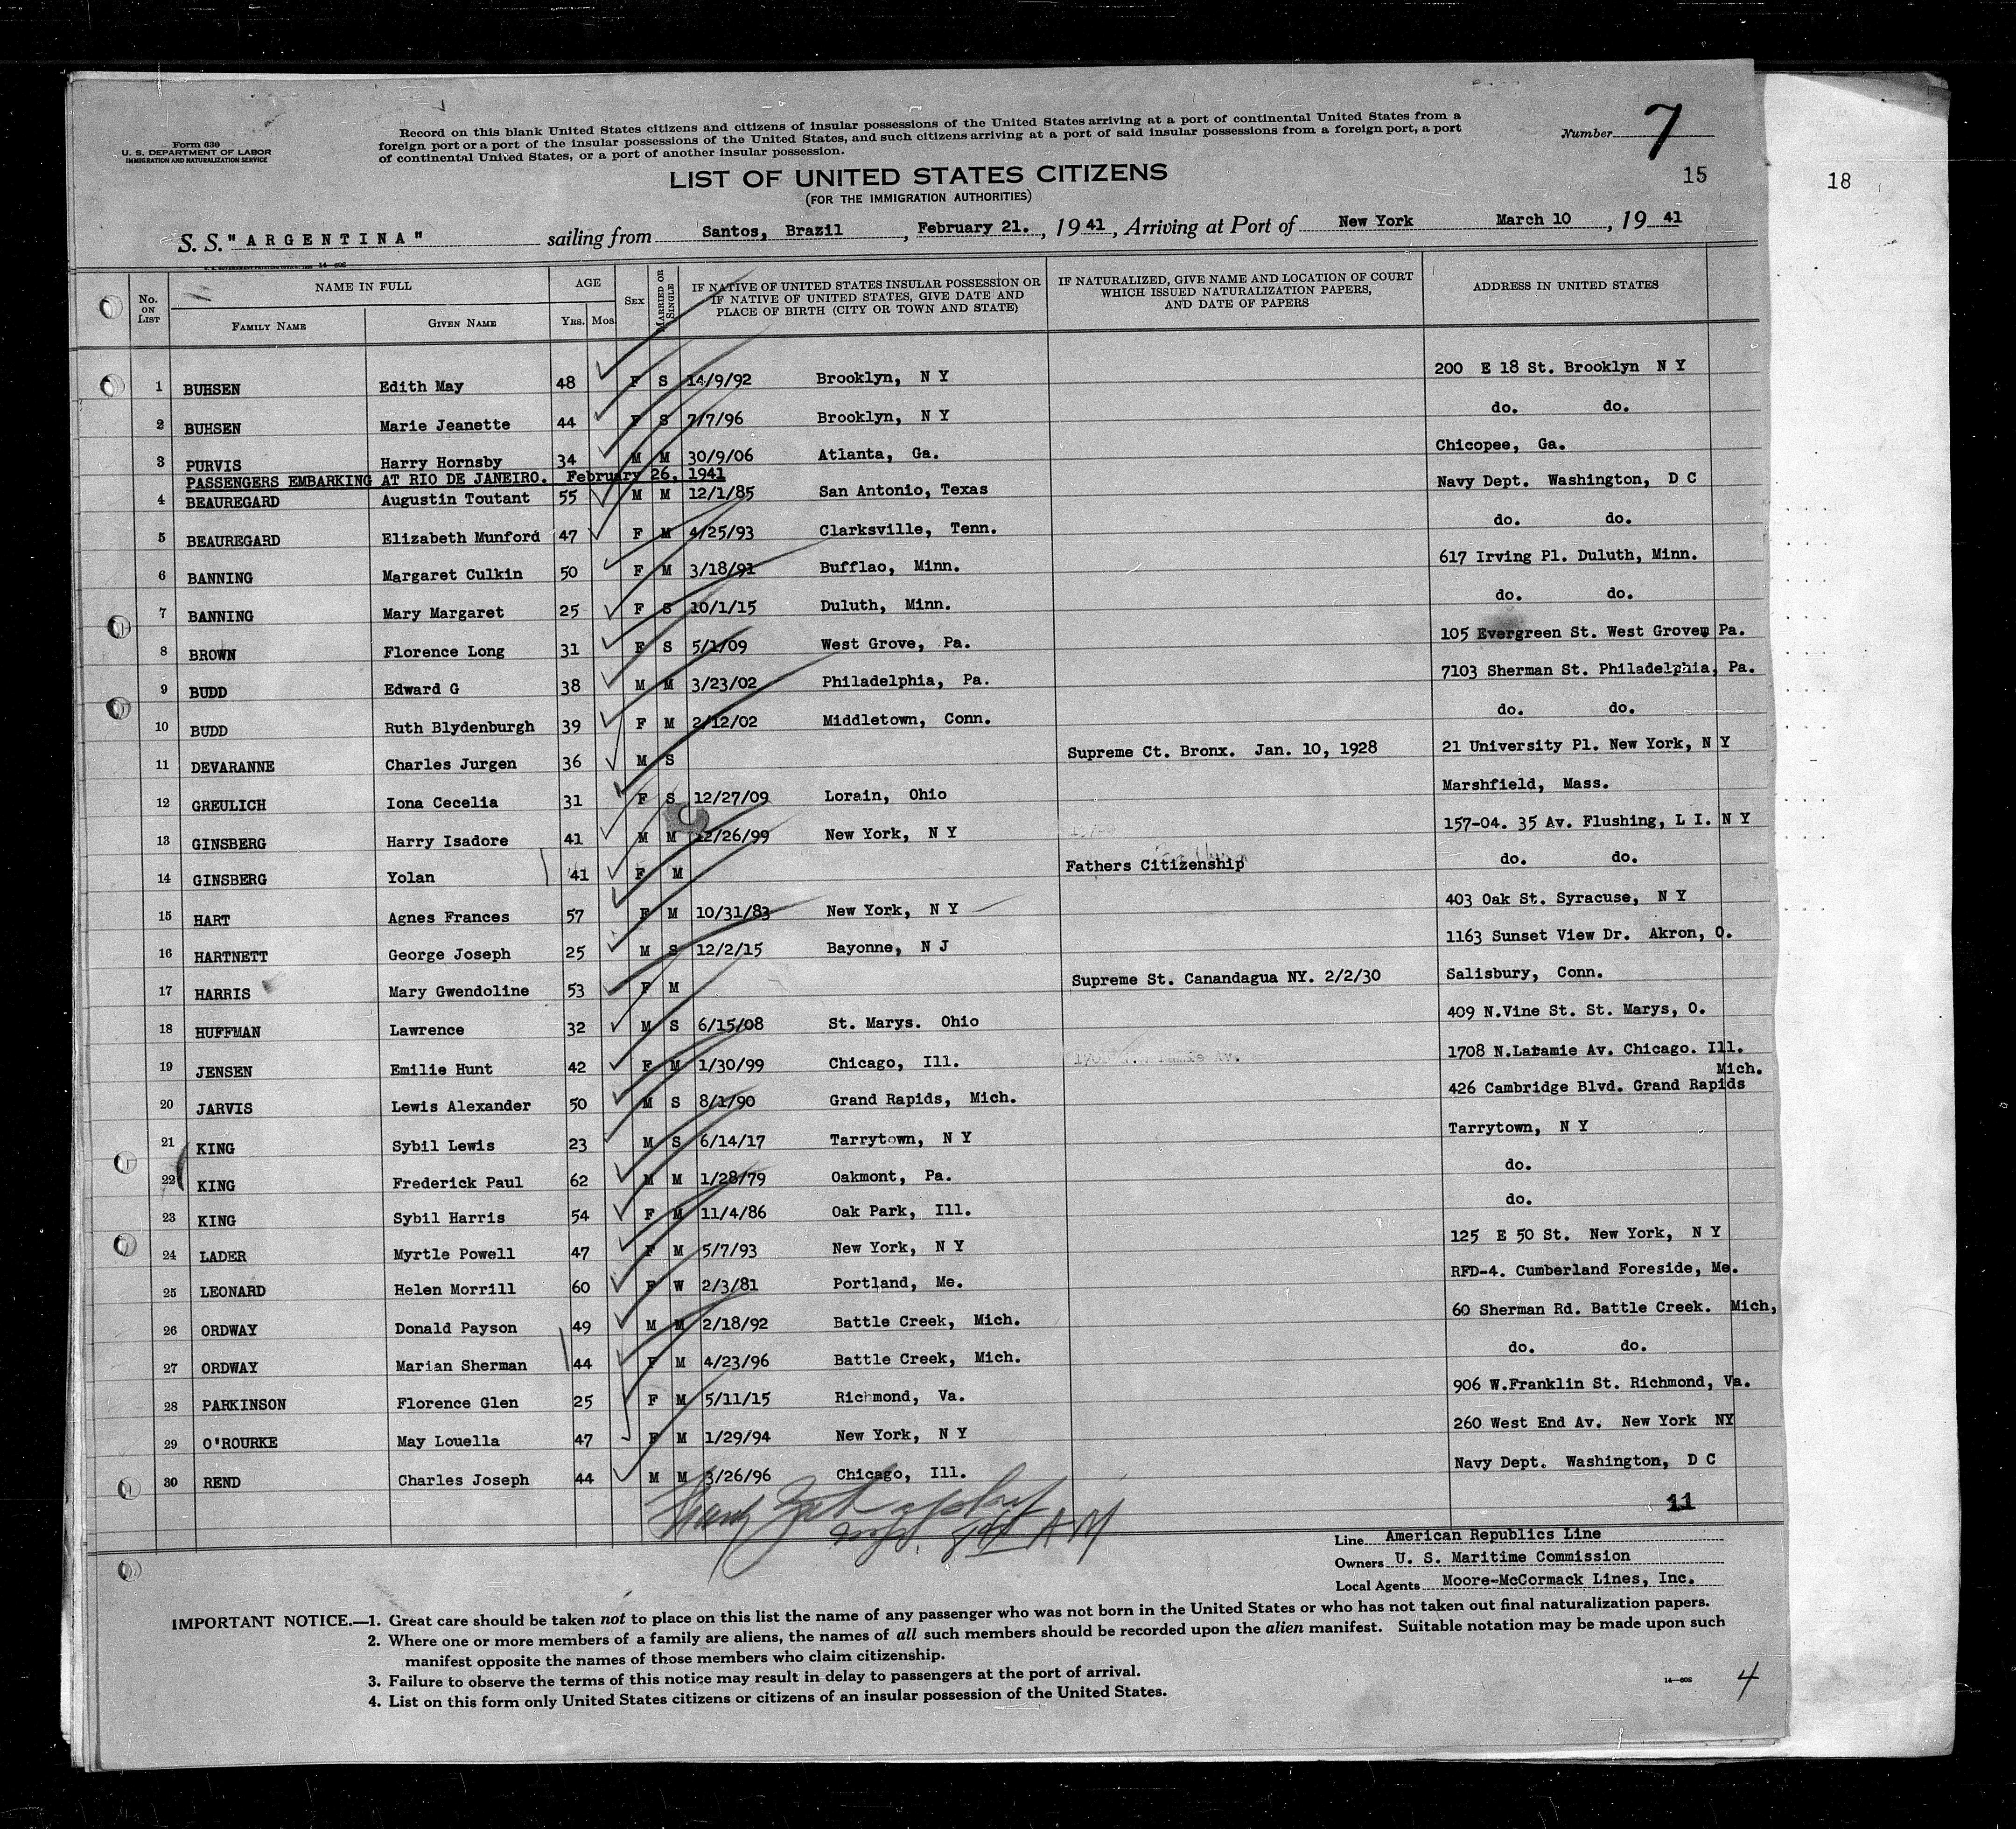 Form 630
U. S. DEPARTMENT OF LABOR
IMMIGRATION AND NATURALIZATION SERVICE
Record on this blank United States citizens and citizens of insular possessions of the United States arriving at a port of continental United States from a
foreign port or a port of the insular possessions of the United States, and such citizens arriving at a port of said insular possessions from a foreign port, a port
of continental United States, or a port of another insular possession.
Number 7
LIST OF UNITED STATES CITIZENS
15
18
(FOR THE IMMIGRATION AUTHORITIES)
S. S. "ARGENTINA" sailing from Santos, Brazil, February 21., 1941, Arriving at Port of New York March 10, 1941
No. ON LIST NAME IN FULL AGE SEX MARRIED OR SINGLE IF NATIVE OF UNITED STATES INSULAR POSSESSION OR IF NATIVE OF UNITED STATES, GIVE DATE AND PLACE OF BIRTH (CITY OR TOWN AND STATE) IF NATURALIZED, GIVE NAME AND LOCATION OF COURT WHICH ISSUED NATURALIZATION PAPERS, AND DATE OF PAPERS ADDRESS IN UNITED STATES
FAMILY NAME GIVEN NAME YRS. MOS
1 BUHSEN Edith May 48 F S 14/9/92 Brooklyn, N Y 200 E 18 St. Brooklyn N Y
2 BUHSEN Marie Jeanette 44 F S 7/7/96 Brooklyn, N Y do. do.
3 PURVIS Harry Hornsby 34 M M 30/9/06 Atlanta, Ga. Chicopee, Ga.
PASSENGERS EMBARKING AT RIO DE JANEIRO. February 26, 1941
4 BEAUREGARD Augustin Toutant 55 M M 12/1/85 San Antonio, Texas Navy Dept. Washington, D C
5 BEAUREGARD Elizabeth Munford 47 F M 4/25/93 Clarksville, Tenn. do. do.
6 BANNING Margaret Culkin 50 F M 3/18/91 Bufflao, Minn. 617 Irving Pl. Duluth, Minn.
7 BANNING Mary Margaret 25 F S 10/1/15 Duluth, Minn. do. do.
8 BROWN Florence Long 31 F S 5/1/09 West Grove, Pa. 105 Evergreen St. West Grove, Pa.
9 BUDD Edward G 38 M M 3/23/02 Philadelphia, Pa. 7103 Sherman St. Philadelphia, Pa.
10 BUDD Ruth Blydenburgh 39 F M 2/12/02 Middletown, Conn. do. do.
11 DEVARANNE Charles Jurgen 36 M S Supreme Ct. Bronx. Jan. 10, 1928 21 University Pl. New York, N Y
12 GREULICH Iona Cecelia 31 F S 12/27/09 Lorain, Ohio Marshfield, Mass.
13 GINSBERG Harry Isadore 41 M M 12/26/99 New York, N Y 157-04. 35 Av. Flushing, L I. N Y
14 GINSBERG Yolan 41 F M Fathers Citizenship do. do.
15 HART Agnes Frances 57 F M 10/31/83 New York, N Y 403 Oak St. Syracuse, N Y
16 HARTNETT George Joseph 25 M S 12/2/15 Bayonne, N J 1163 Sunset View Dr. Akron, O.
17 HARRIS Mary Gwendoline 53 F M Supreme St. Canandagua NY. 2/2/30 Salisbury, Conn.
18 HUFFMAN Lawrence 32 M S 6/15/08 St. Marys. Ohio 409 N.Vine St. St. Marys, O.
19 JENSEN Emilie Hunt 42 F M 1/30/99 Chicago, Ill. 1708 N.Laramie Av. Chicago. Ill.
20 JARVIS Lewis Alexander 50 M S 8/1/90 Grand Rapids, Mich. 426 Cambridge Blvd. Grand Rapids Mich.
21 KING Sybil Lewis 23 M S 6/14/17 Tarrytown, N Y Tarrytown, N Y
22 KING Frederick Paul 62 M M 1/28/79 Oakmont, Pa. do.
23 KING Sybil Harris 54 F M 11/4/86 Oak Park, Ill. do.
24 LADER Myrtle Powell 47 F M 5/7/93 New York, N Y 125 E 50 St. New York, N Y
25 LEONARD Helen Morrill 60 F W 2/3/81 Portland, Me. RFD-4. Cumberland Foreside, Me.
26 ORDWAY Donald Payson 49 M M 2/18/92 Battle Creek, Mich. 60 Sherman Rd. Battle Creek. Mich,
27 ORDWAY Marian Sherman 44 F M 4/23/96 Battle Creek, Mich. do. do.
28 PARKINSON Florence Glen 25 F M 5/11/15 Richmond, Va. 906 W.Franklin St. Richmond, Va.
29 O'ROURKE May Louella 47 F M 1/29/94 New York, N Y 260 West End Av. New York NY
30 REND Charles Joseph 44 M M 3/26/96 Chicago, Ill. Navy Dept. Washington, D C
11
Line American Republics Line
Owners U. S. Maritime Commission
Local Agents Moore-McCormack Lines, Inc.
IMPORTANT NOTICE.—1. Great care should be taken not to place on this list the name of any passenger who was not born in the United States or who has not taken out final naturalization papers.
2. Where one or more members of a family are aliens, the names of all such members should be recorded upon the alien manifest. Suitable notation may be made upon such
manifest opposite the names of those members who claim citizenship.
3. Failure to observe the terms of this notice may result in delay to passengers at the port of arrival.
4. List on this form only United States citizens or citizens of an insular possession of the United States.
14—606
4